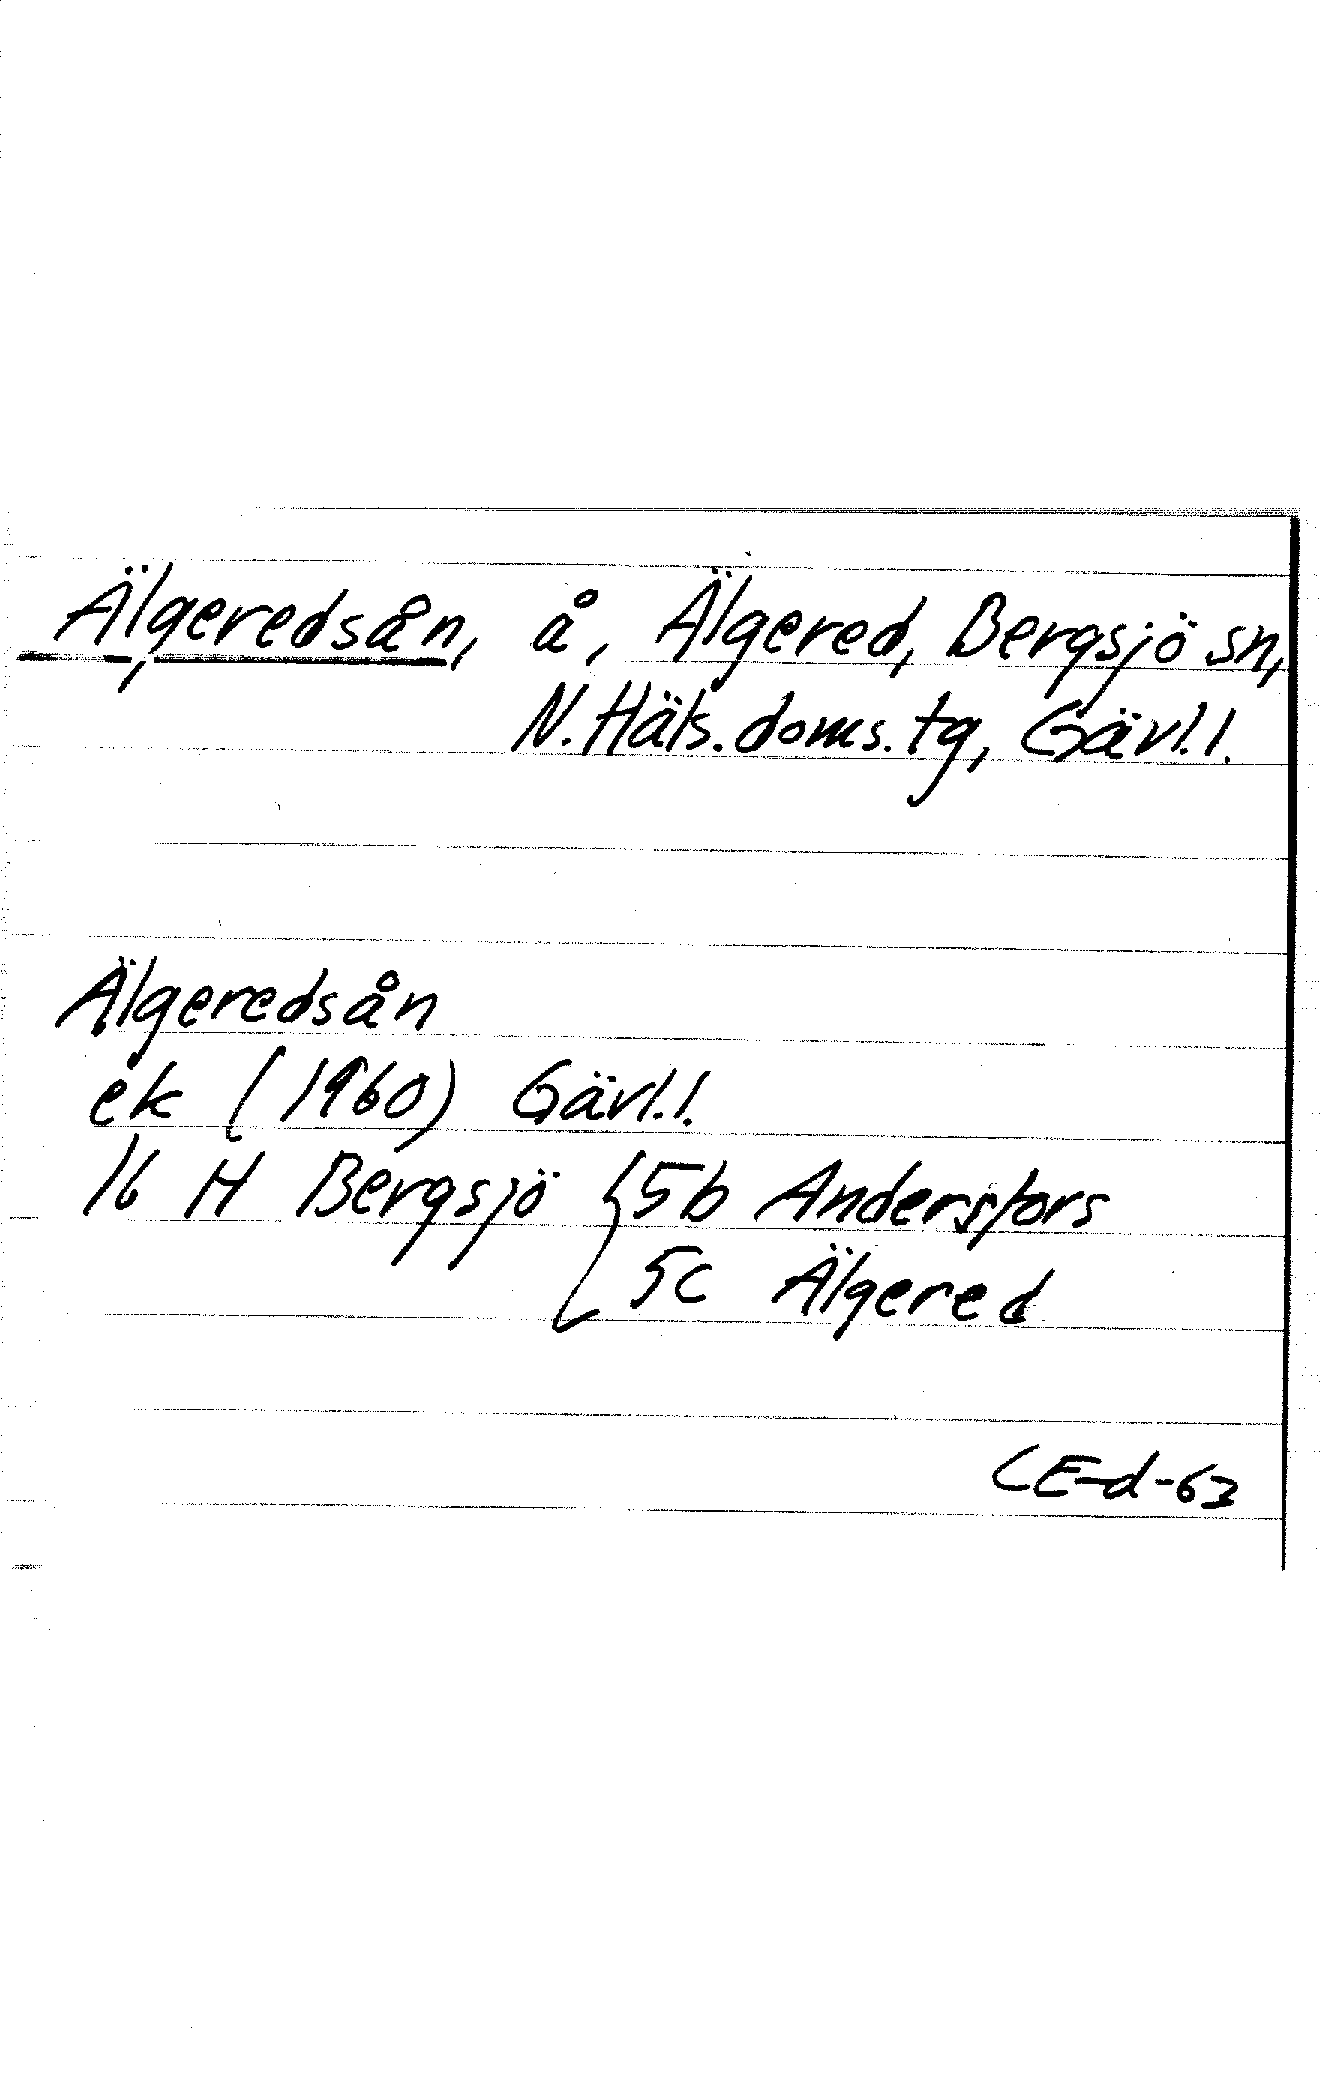 Älgeredsån, å, Älgered, Bergsjö sn,
N. Häls. doms. tg, Gävl.l.
Älgeredsån
ek (1960) Gävl.l.
16 H Bergsjö { 5b Andersfors
5c Älgered
CE-d-63